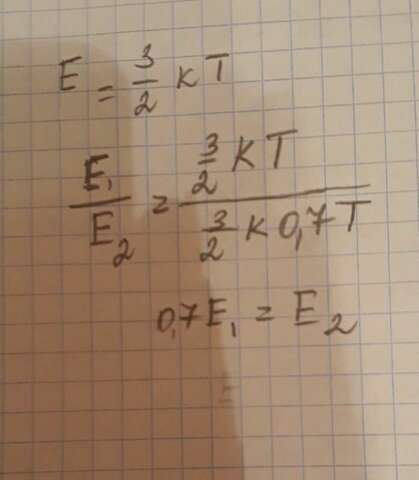 E = 3/2 кT
E₁/E₂ = (3/2 кT)/(3/2 к 0,7T)
0,7E₁ = E₂